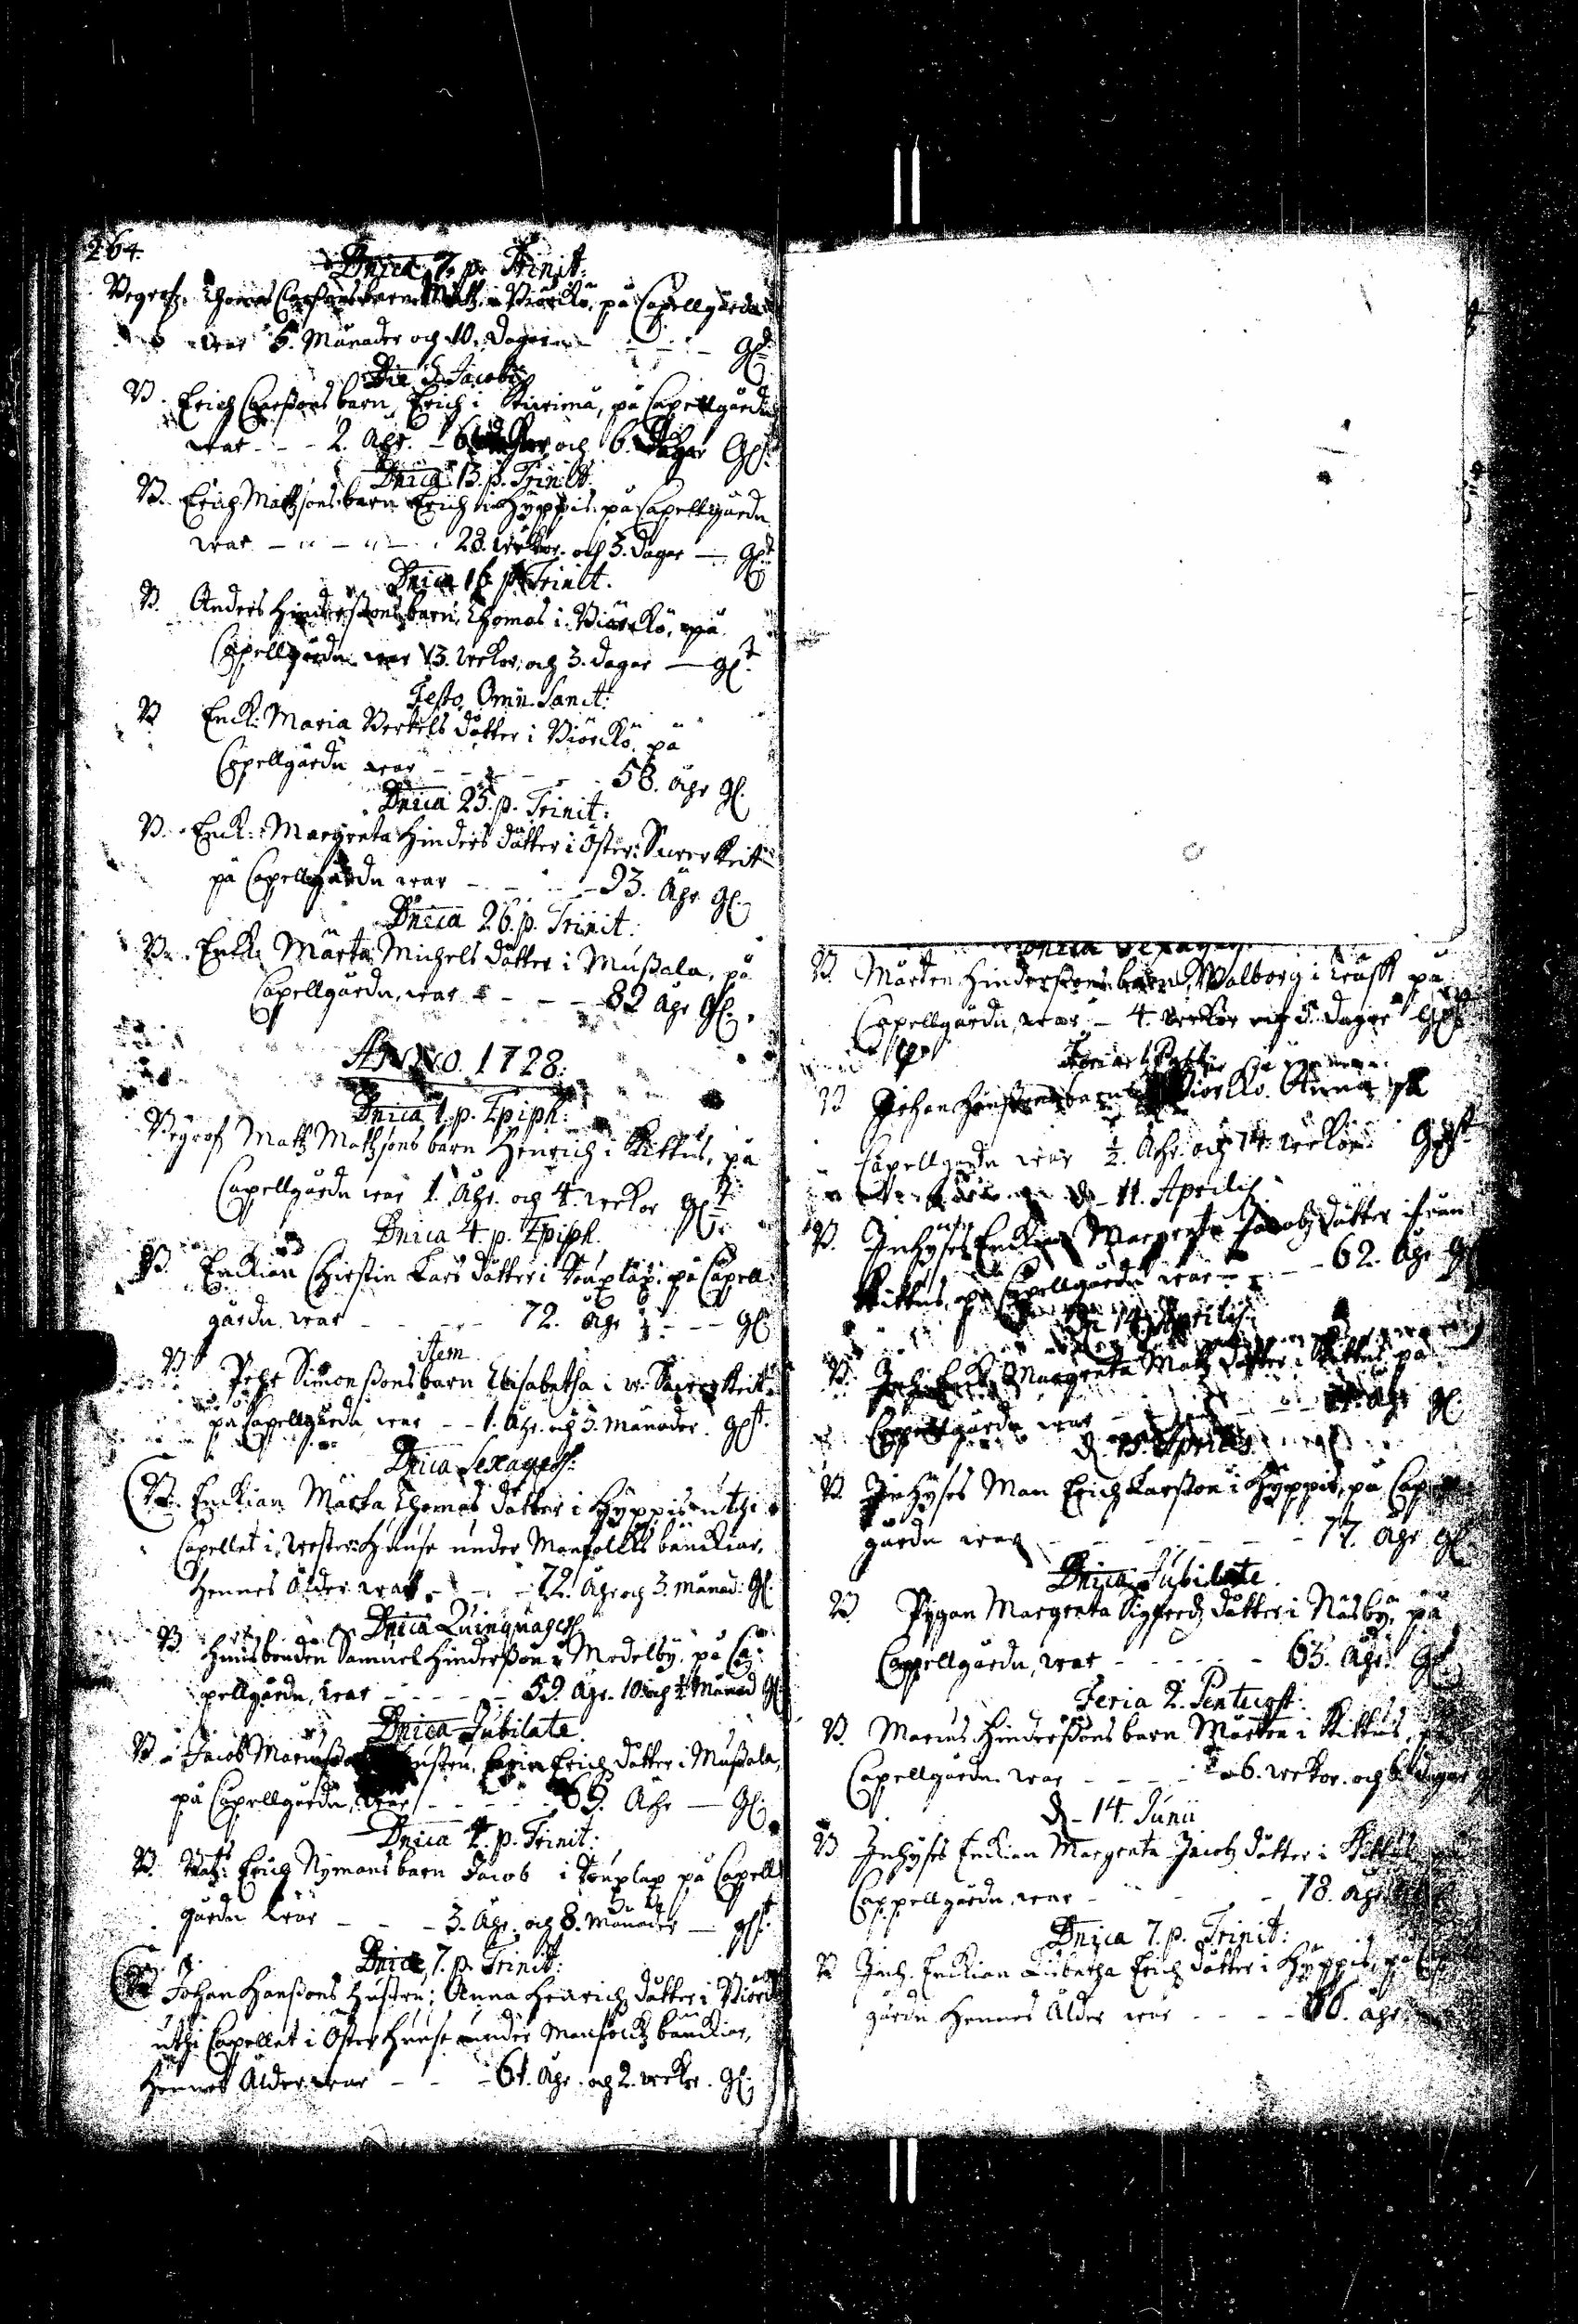 264.
Dnica 7. p. Trinit:
Begrofz. Thomas Clasßons barn Matz i Biörckö, på Capellgården
war 5. Månader och 10. Dagar - - - gl.
Die S. Jacobi
B. Erich Clarßons barn, Erich i Kurima, på Capellgårdn
war - - - 2. Åhr. - 6 och 6. dagar Gl:
Dnica 13. p. Trinit.
B. Erich Mattzsons barn Erich i Hyppis, på Capellgårdn
war - " - " - 23. wekor. och 3. dagar - gl:
Dnica 16 p. Trinit.
B. Anders Hinderßons barn, Thomas i Biörckö, på
Capellgårdn war 13. wekor, och 3. dagar - gl:
Festo Omn. Sanct:
B Enck: Maria Bertels dåtter i Biörckö, på
Capellgårdn war - - - - 58. åhr gl.
Dnica 25. p. Trinit:
B. Enck: Margreta Hinders dåtter i Öster: Surerkeit
på Capellgårdn war - - - - 93. Åhr gl.
Dnica 26. p. Trinit:
B. Enck: Märta Michels dåtter i Mußala, på
Capellgårdn, war - - - 82 åhr gl.
ANNO. 1728:
Dnica 1. p. Epiph:
Begrof Matz Matzsons barn Henrich i Kittus, på
Capellgårdn war 1. Åhr. och 4. wekor gl:
Dnica 4. p. Epiph.
B Enckian Chirstin Lars dåtter i Tönplax, på Capell:
gårdn war - - - - 72. åhr - - - gl:
Item
B Pehr Simonßons barn Elisabetha i w: Surerkeit
på Capellgårdn war - - 1. Åhr. och 3. månader. gl:
Dnica Sexages:
B. Enckian Märta Thomas dåtter i Hyppis uthi
Capellet i wester: Huuse under Manfolks bänckiar,
Hennes ålder war - - - 72. åhr och 3. månad: gl.
Dnica Quinquages
B Huusbonden Samuel Hinderßon i Medelby, på Ca:
pellgårdn, war - - - - - 59. åhr. 10. och ½ Månad gl
Dnica Jubilate.
B Jacob hustru, Erich dåtter i Mußala,
på Capellgårdn, war - - - - 69. Åhr - gl.
Dnica 4. p. Trinit:
B. Erich Nymans barn Jacob i Tönplax på Capell
gårdn war - - - 3. Åhr. och 8. månader - gl:
Dnica 7. p. Trinit:
B Johan Hanßons hustru; Anna Henrich dåtter i Biörckö
uthi Capellet i Öster Huuse under Manfolcks bänckiar,
Hennes Ålder war - - - 61. Åhr. och 2. wekor. gl.
Dnica Sexages.
B. Mårten Hinderßons barn, Walborg i Kräfft på
Capellgårdn, war - 4. wekor och 5. dagar Gl
B Johan Hanßons barn Biörckö. Anna på
Capellgårdn war ½. Åhr. och 14. wekor. Gl:
d. 11. Aprilis.
B. Inhyses Enckian Margreta Jacobs dåtter ifrån
Kittus, på Capellgårdn war - - - 62. åhr gl
d. 14. Aprilis:
B. Inh: Enck: Margreta Matz dåtter i Kittus på
Capellgårdn war - - - - åhr gl.
d. 15. Aprilis
B. Inhyses Man Erich Larßon i Hyppis, på Capell
gårdn war - - - - - - 77. åhr gl.
Dnica Jubilate.
B. Pigan Margreta Sigfreds dåtter i Näsby, på
Cappellgårdn, war - - - - - 63. åhr. gl
Feria 2. Pentecost:
B. Marcus Hinderßons barn Mårten i Kittus,
Capellgårdn. war - - - - 6. wekor. och 6. dagar gl
d. 14. Junii
B Inhyses Enckian Margreta Jacobs dåtter i Kittus på
Cappellgårdn war - - - - 78. åhr
Dnica 7. p. Trinit:
B Inh. Enckian Lisbetha Erich dåtter i Hyppis, på Cap
gårdn Hennes Ålder war - - - - 86. åhr